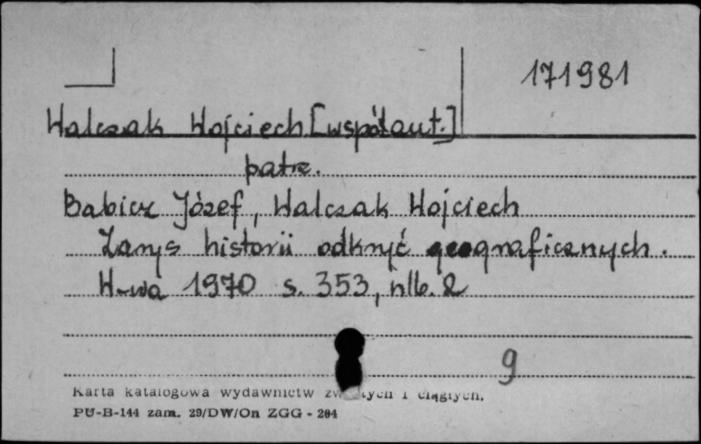 171981
Walczak Wojciech [współaut.]
patrz.
Babicz Józef, Walczak Wojciech
Zarys historii odkryć geograficznych.
W-wa 1970 s. 353, nlb. 2
9
Karta katalogowa wydawnictw zwartych i ciągłych.
PU-B-144 zam. 29/DW/On ZGG - 204